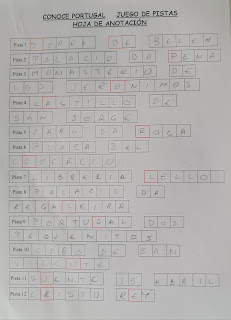 CONOCE PORTUGAL JUEGO DE PISTAS
HOJA DE ANOTACIÓN
Pista 1 TORRE DE BELEM
Pista 2 PALACIO DA PENA
Pista 3 MONASTERIO DE
LOS JERONIMOS
Pista 4 CASTILLO DE
SAN JORGE
Pista 5 CABO DA ROCA
Pista 6 PLAZA DEL
COMERCIO
Pista 7 LIBRERIA LELLO
Pista 8 PALACIO DA
REGALEIRA
Pista 9 PORTUGAL DOS
PEQUENITOS
Pista 10 CABO DE SAN
VICENTE
Pista 11 PUENTE 25 ABRIL
Pista 12 CRISTO REY